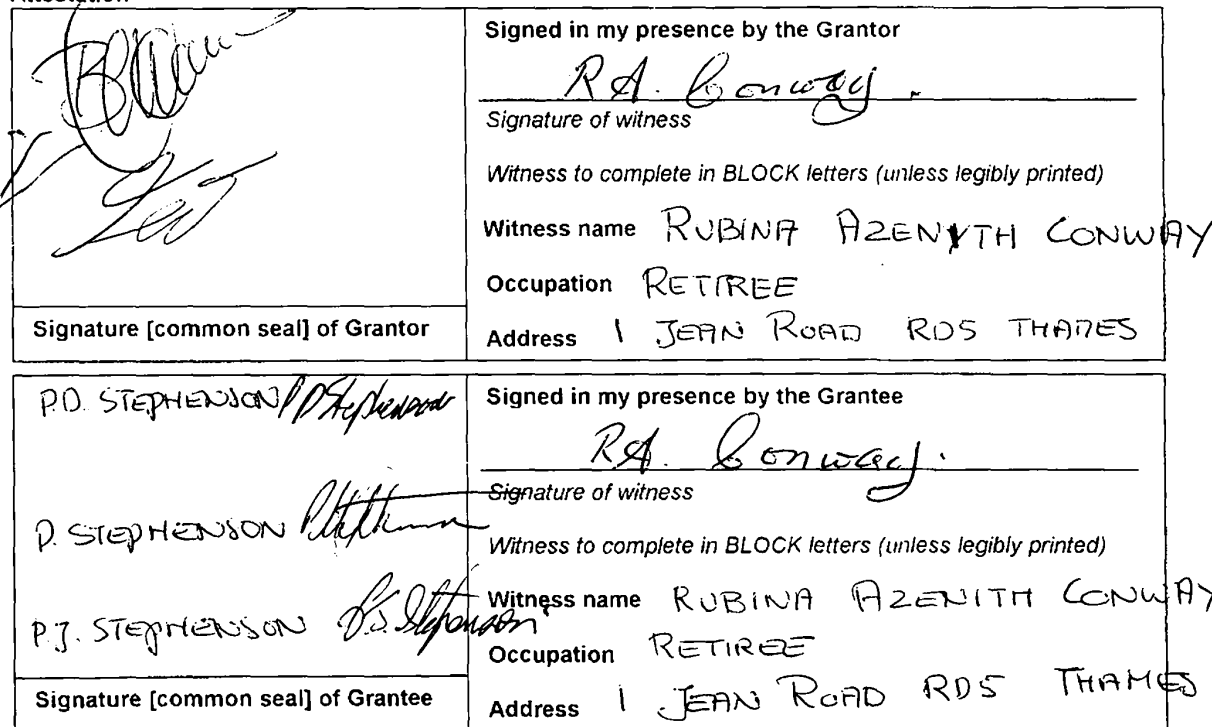 Attestation
Signed in my presence by the Grantor
R.A. Conway.
Signature of witness
Witness to complete in BLOCK letters (unless legibly printed)
Witness name RUBINA AZENYTH CONWAY
Occupation RETIREE
Signature [common seal] of Grantor
Address 1 JEAN ROAD RD5 THAMES
P.D. STEPHENSON P D Stephenson
D. STEPHENSON
P.J. STEPHENSON P.J. Stephenson
Signature [common seal] of Grantee
Signed in my presence by the Grantee
R.A. Conway.
Signature of witness
Witness to complete in BLOCK letters (unless legibly printed)
Witness name RUBINA AZENITH CONWAY
Occupation RETIREE
Address 1 JEAN ROAD RD5 THAMES